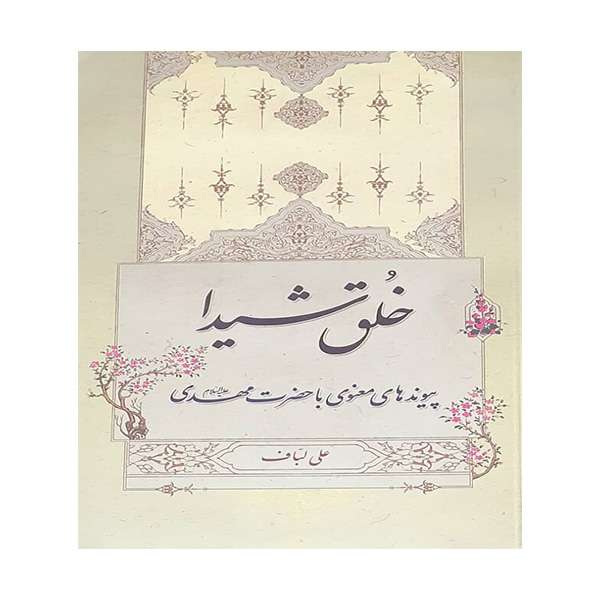 خُلق شیدا
پیوندهای معنوی با حضرت مهدی علیه‌السلام
علی لباف